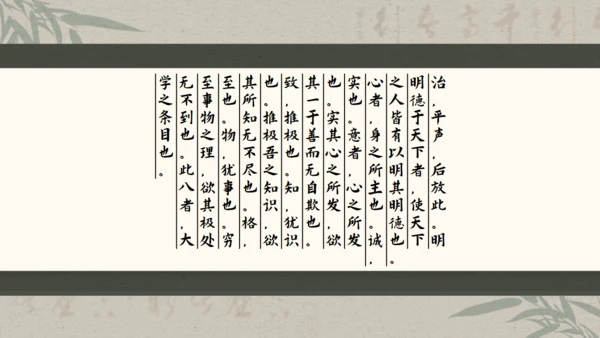 治，平声，后放此。明
明德于天下者，使天下
之人皆有以明其明德也。
心者，身之所主也。诚，
实也。意者，心之所发
也。实其心之所发，欲
其一于善而无自欺也。
致，推极也。知，犹识
也。推极吾之知识，欲
其所知无不尽也。格，
至也。物，犹事也。穷
至事物之理，欲其极处
无不到也。此八者，大
学之条目也。